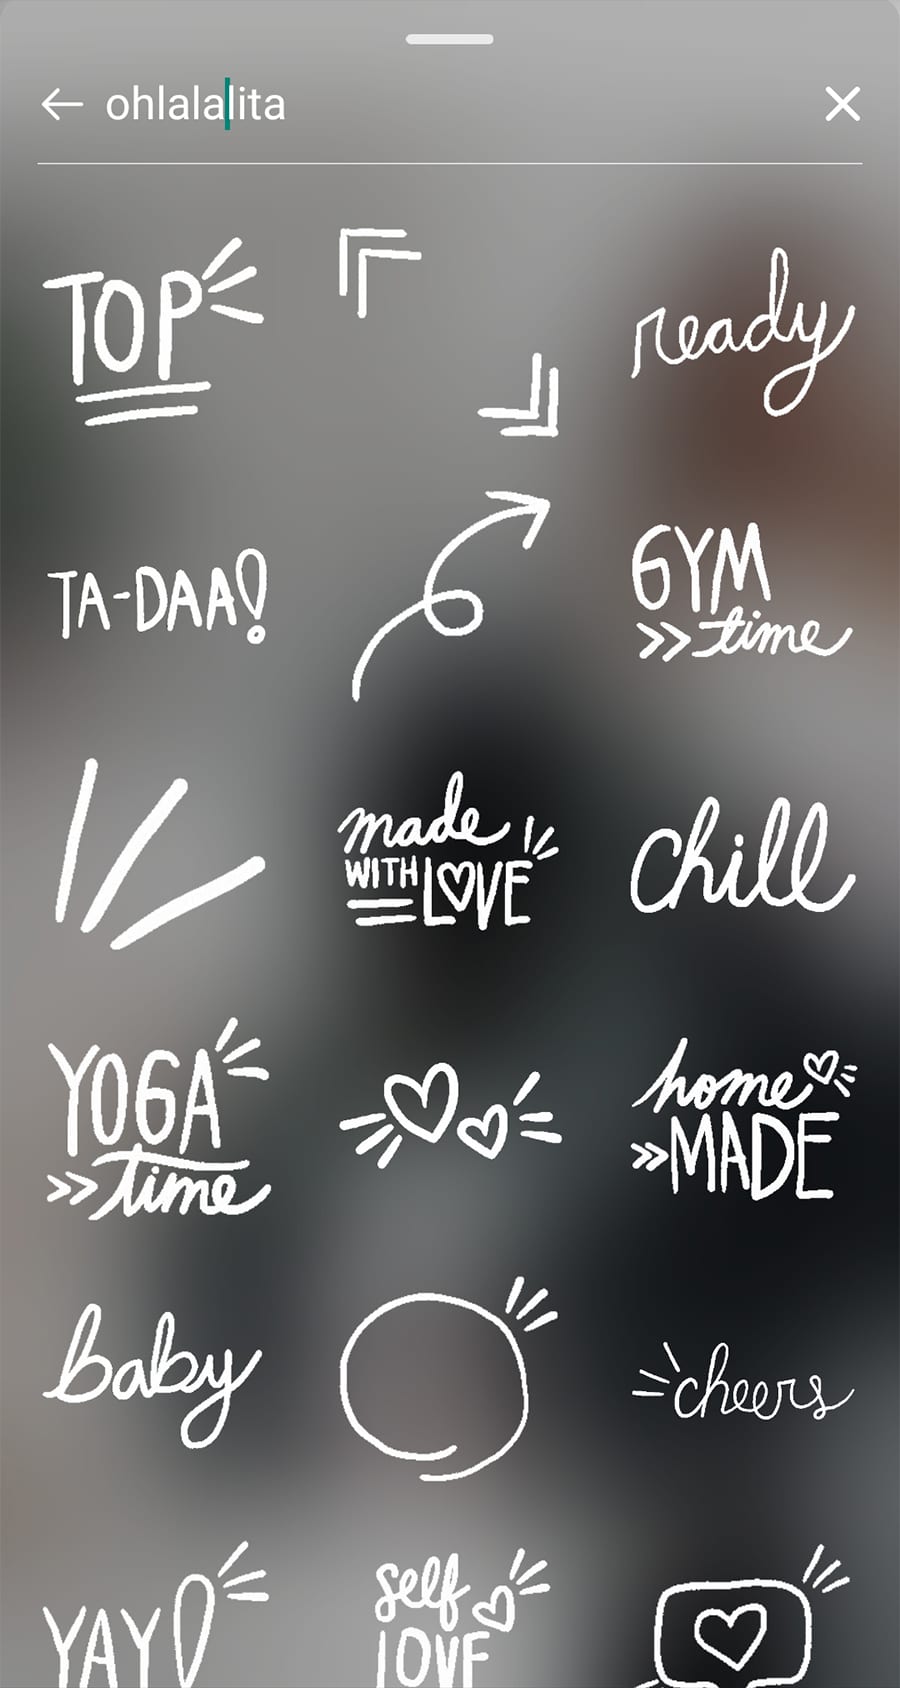 ohlalalita
TOP
ready
TA-DAA!
GYM
>> time
made
WITH LOVE
chill
YOGA
>> time
home
>> MADE
baby
cheers
YAY!
self
LOVE